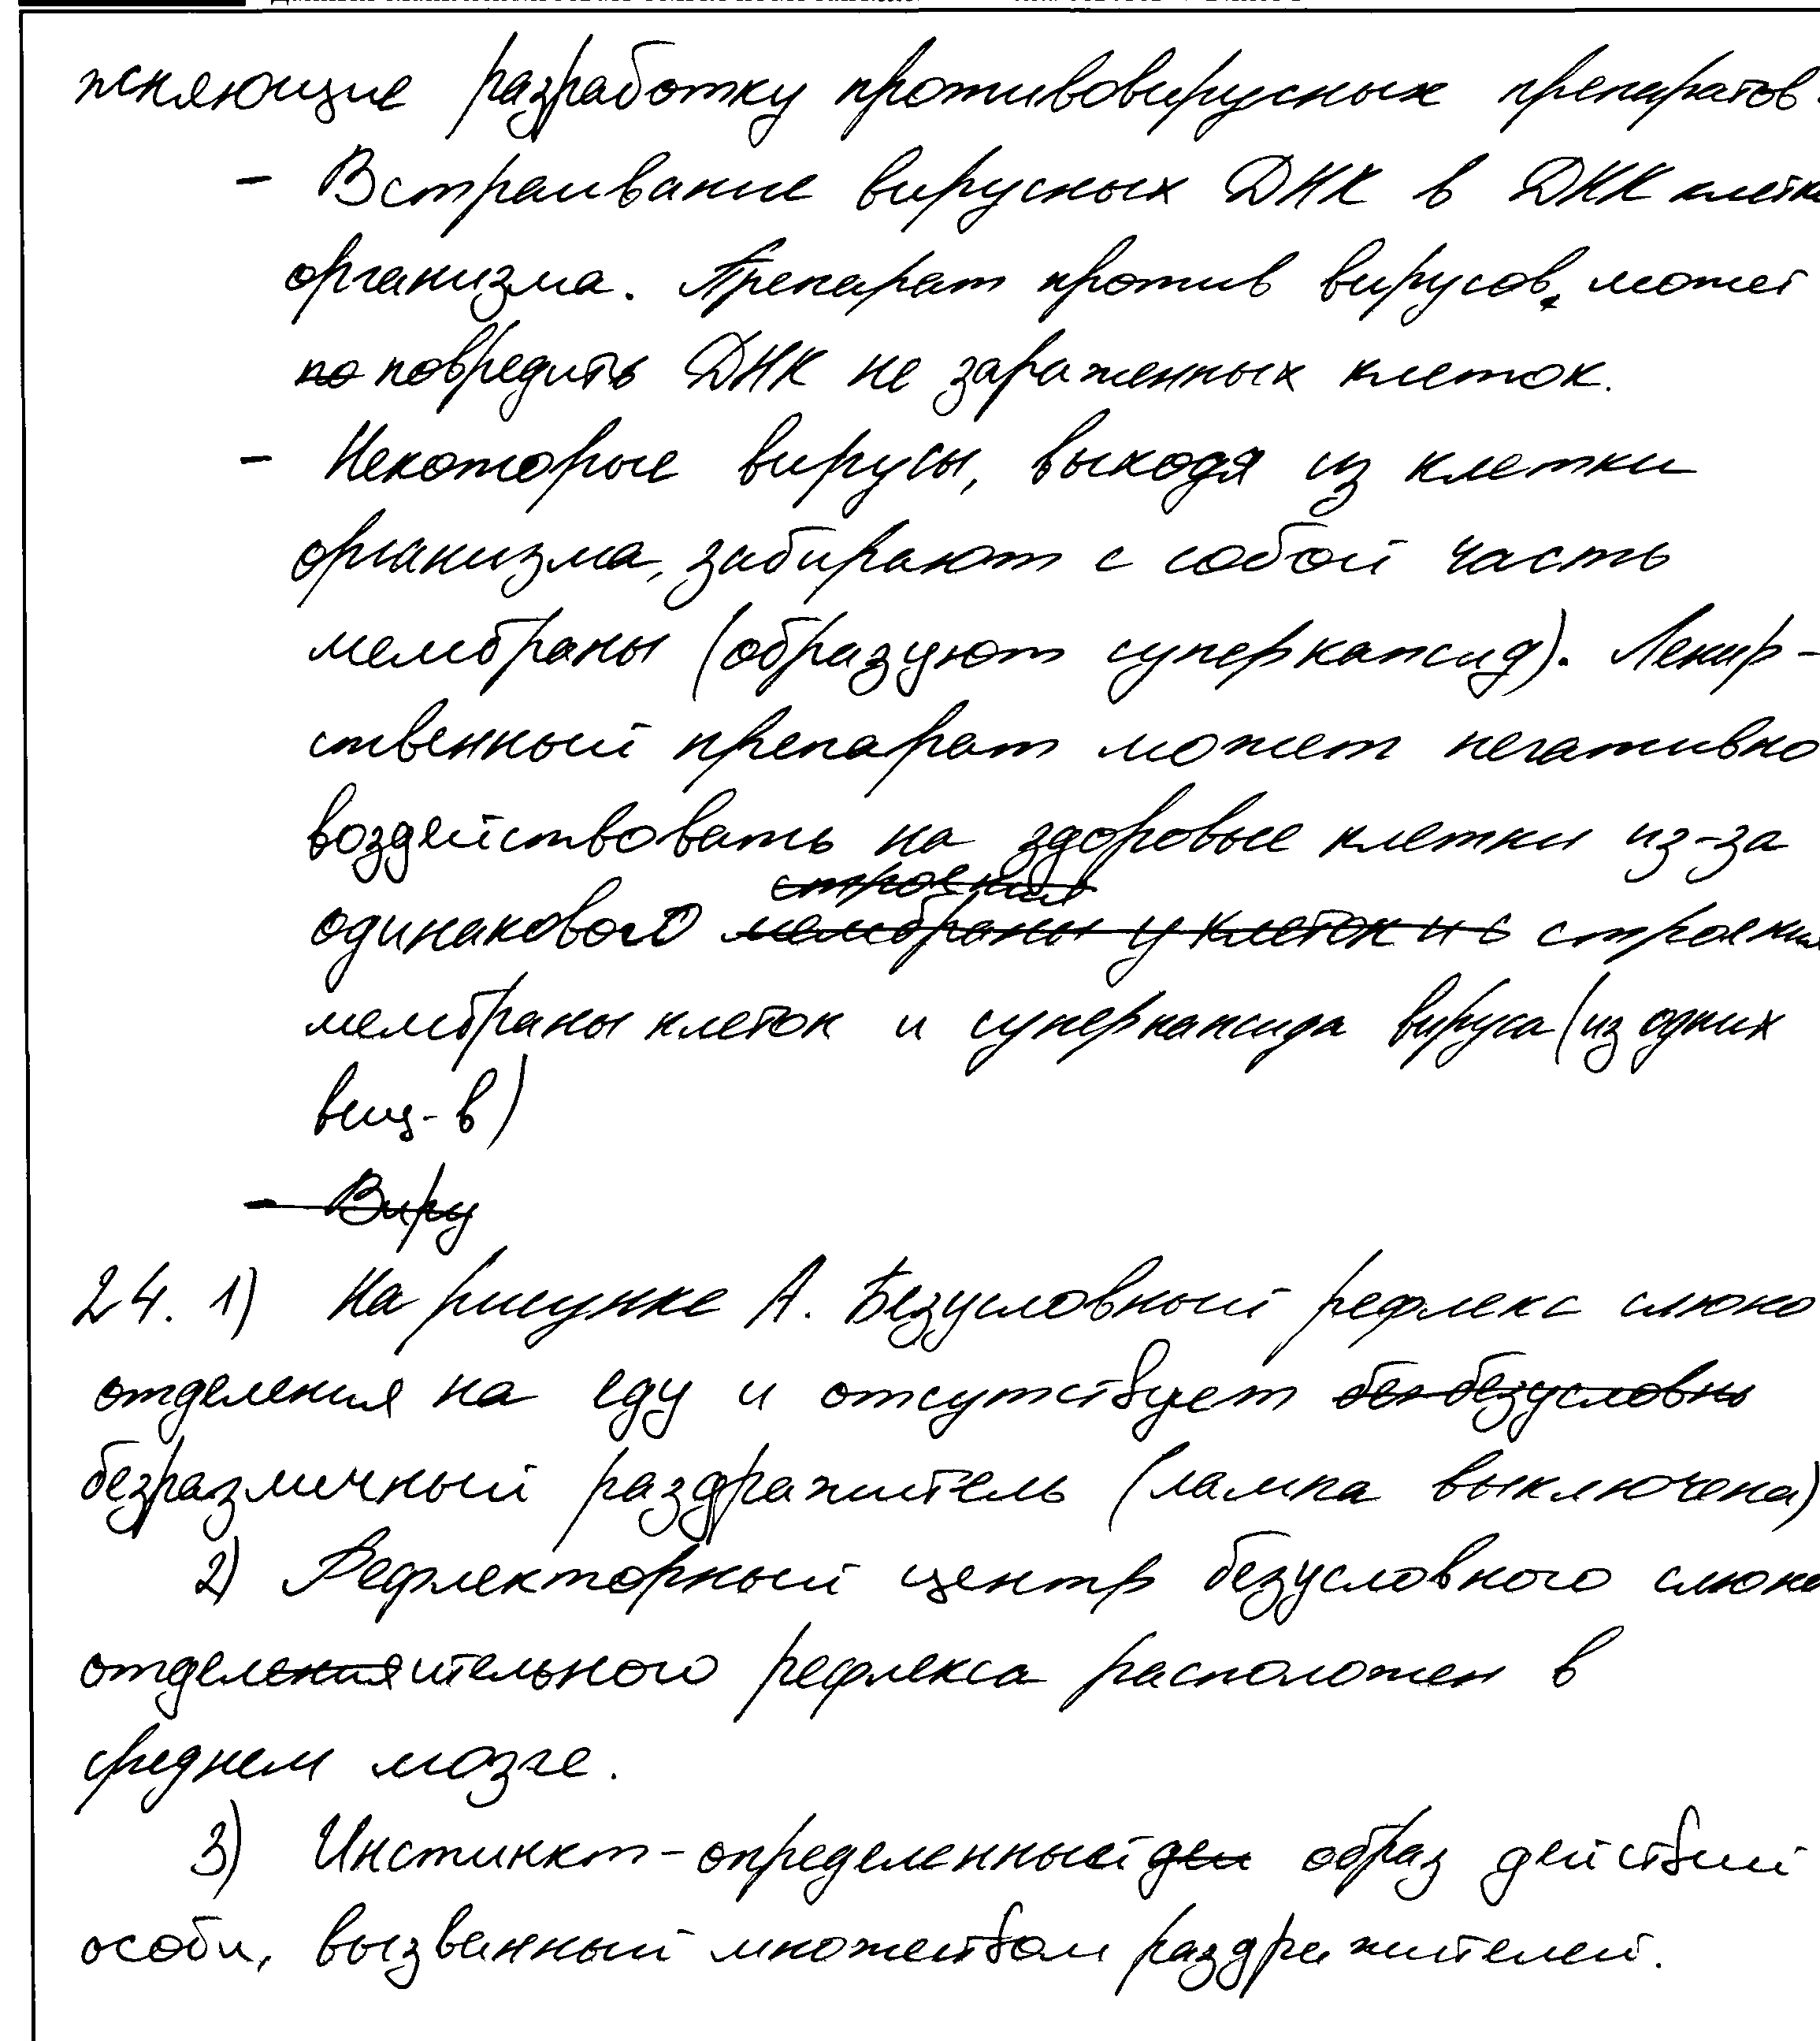 жняющие разработку противовирусных препаратов.
- Встраивание вирусных ДНК в ДНК клетки
организма. Препарат против вирусов может
по повредить ДНК не зараженных клеток.
- Некоторые вирусы, выходя из клетки
организма, забирают с собой часть
мембраны (образуют суперкапсид). Лекар-
ственный препарат может негативно
воздействовать на здоровые клетки из-за
строения
одинакового мембраны у клеток и с строения
мембраны клеток и суперкапсида вируса (из одних
вещ-в)
- Виру
24. 1) На рисунке А. Безусловный рефлекс слюно
отделения на еду и отсутствует без безусловны
безразличный раздражитель (лампа выключена)
2) Рефлекторный центр безусловного слюно
отделенияительного рефлекса расположен в
среднем мозге.
3) Инстинкт - определенный дей образ действий
особи, вызванный множеством раздражителей.